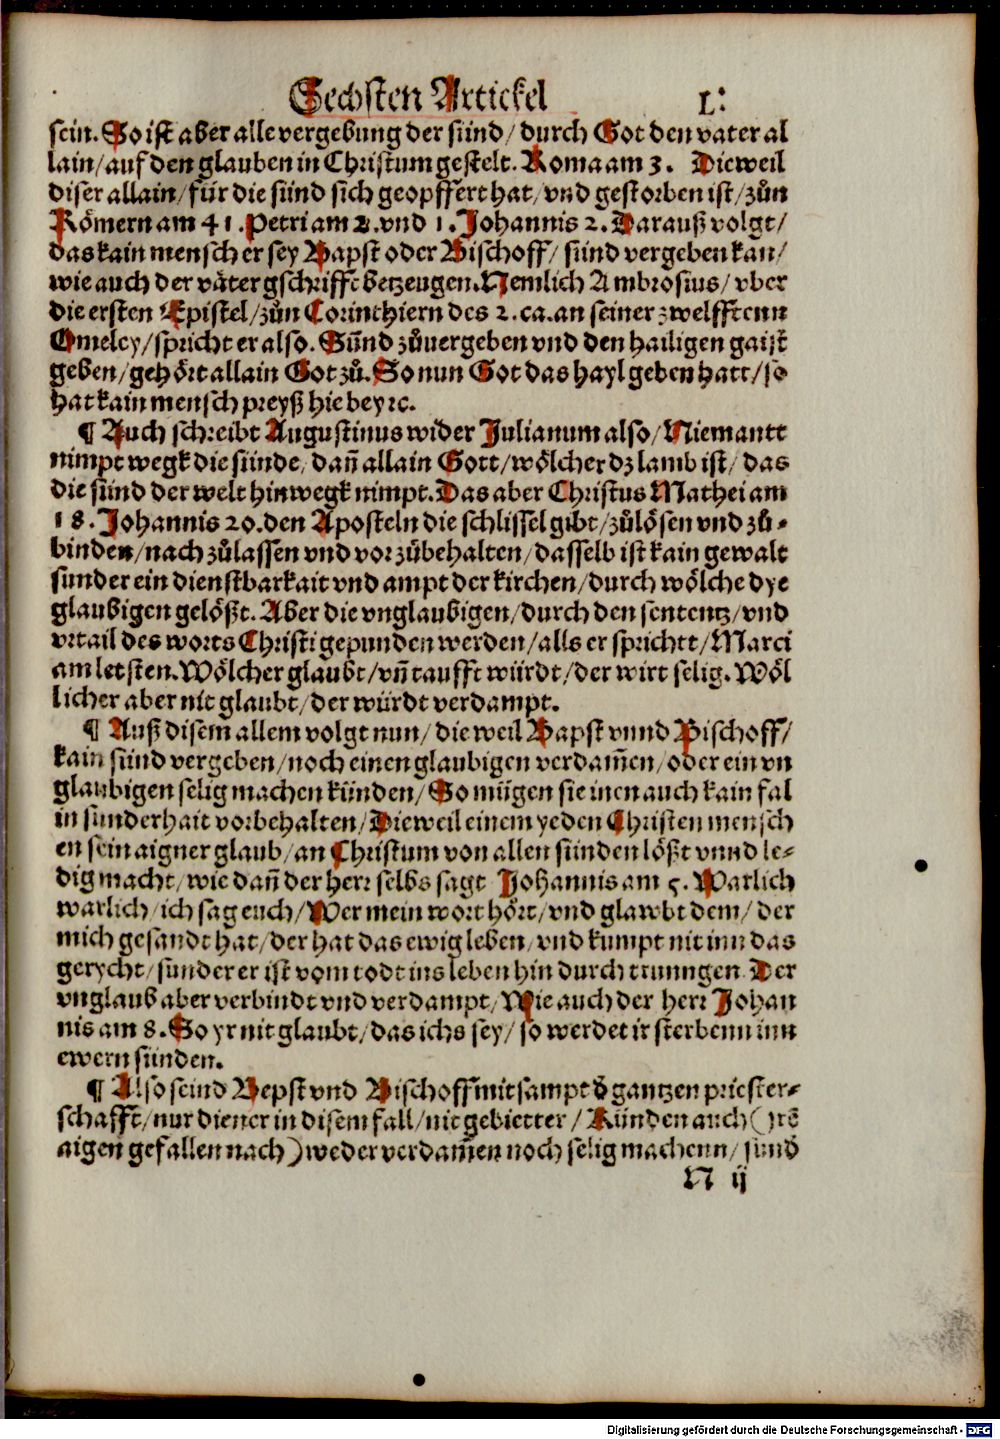 Sechsten Artickel L:
sein. So ist aber alle vergebung der sünd/ durch Got den vater al
lain/ auf den glauben in Christum gestelt. Roma am 3. Dieweil
diser allain/ für die sünd sich geopffert hat/ vnd gestorben ist/ zůn
Römern am 4 1. Petri am 2. vnd 1. Johannis 2. Darauß volgt/
das kain mensch er sey Bapst oder Bischoff/ sünd vergeben kan/
wie auch der väter gschrifft betzeugen. Nemlich Ambrosius/ vber
die ersten Epistel/ zůn Corinthiern des 2. ca. an seiner zwelfftenn
Omeley/ spricht er also. Sünd zůuergeben vnd den hailigen gaist
geben/ gehört allain Got zů. So nun Got das hayl geben hatt/ so
hat kain mensch preyß hie bey ⁊c.
¶ Auch schreibt Augustinus wider Julianum also/ Niemantt
nimpt wegk die sünde/ dañ allain Gott/ wölcher dz lamb ist/ das
die sünd der welt hinwegk nimpt. Das aber Christus Mathei am
18. Johannis 20. den Aposteln die schlissel gibt/ zůlösen vnd zů-
binden/ nach zůlassen vnd vor zůbehalten/ dasselb ist kain gewalt
sunder ein dienstbarkait vnd ampt der kirchen/ durch wölche dye
glaubigen gelößt. Aber die vnglaubigen/ durch den sententz/ vnd
vrtail des worts Christi gepunden werden/ alls er sprichtt/ Marci
am letsten. Wölcher glaubt/ vñ taufft würdt/ der wirt selig. Wöl
licher aber nit glaubt/ der würdt verdampt.
¶ Auß disem allem volgt nun/ die weil Bapst vnnd Bischoff/
kain sünd vergeben/ noch einen glaubigen verdam̃en/ oder ein vn
glaubigen selig machen künden/ So mügen sie inen auch kain fal
in sunderhait vorbehalten/ Dieweil einem yeden Christen mensch
en sein aigner glaub/ an Christum von allen sünden lößt vnnd le-
dig macht/ wie dañ der herr selbs sagt Johannis am 5. Warlich
warlich/ ich sag euch/ Wer mein wort hört/ vnd glawbt dem/ der
mich gesandt hat/ der hat das ewig leben/ vnd kumpt nit inn das
gerycht/ sunder er ist vom todt ins leben hin durch trunngen. Der
vnglaub aber verbindt vnd verdampt/ Wie auch der herr Johan
nis am 8. So yr nit glaubt/ das ichs sey/ so werdet ir sterbenn inn
ewern sünden.
¶ Also seind Bepst vnd Bischoff mit sampt đ gantzen priester-
schafft/ nur diener in disem fall/ nit gebietter/ Künden auch (jrẽ
aigen gefallen nach) weder verdam̃en noch selig machenn/ sund
N ij
Digitalisierung gefördert durch die Deutsche Forschungsgemeinschaft - DFG